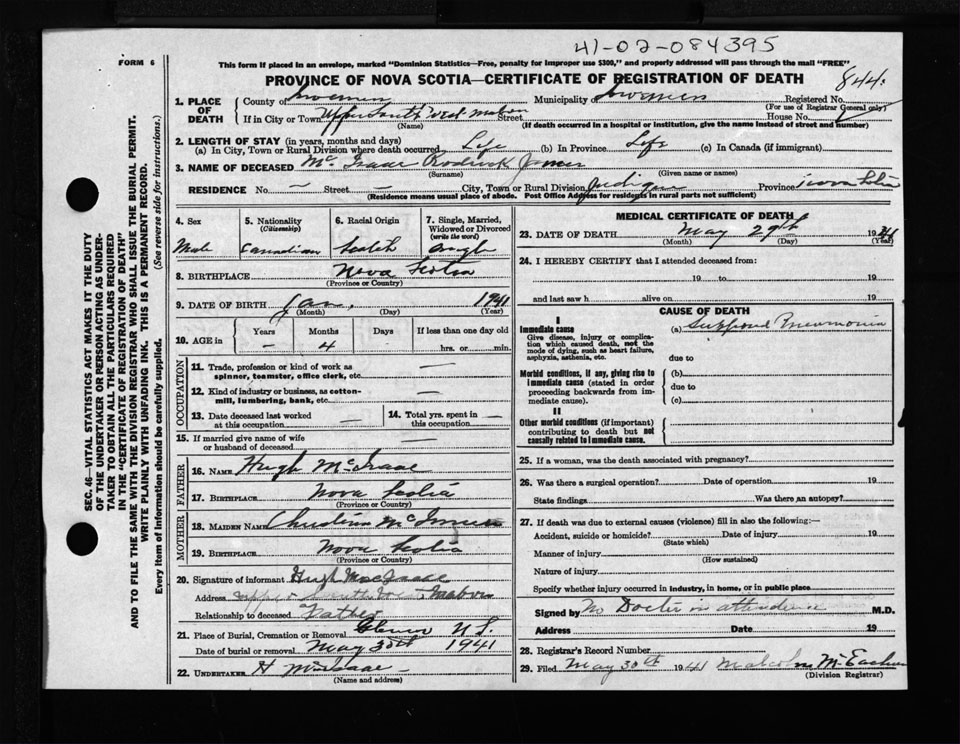 41-02-084395
FORM 6
This form if placed in an envelope, marked "Dominion Statistics—Free, penalty for improper use $300," and properly addressed will pass through the mail "FREE"
PROVINCE OF NOVA SCOTIA—CERTIFICATE OF REGISTRATION OF DEATH
844
1. PLACE OF DEATH
County of Inverness Municipality of Inverness Registered No.
(For use of Registrar General only)
If in City or Town Upper South West Mabou Street House No.
(Name) (If death occurred in a hospital or institution, give the name instead of street and number)
2. LENGTH OF STAY (in years, months and days)
(a) In City, Town or Rural Division where death occurred Life (b) In Province Life (c) In Canada (if immigrant)
3. NAME OF DECEASED Mc Isaac Rodrick James
(Surname) (Given name or names)
RESIDENCE No. — Street — City, Town or Rural Division Judique Province Nova Scotia
(Residence means usual place of abode. Post Office Address for residents in rural parts not sufficient)
4. Sex Male
5. Nationality (Citizenship) Canadian
6. Racial Origin Scotch
7. Single, Married, Widowed or Divorced (write the word) Single
8. BIRTHPLACE Nova Scotia
(Province or Country)
9. DATE OF BIRTH Jan. 1941
(Month) (Day) (Year)
10. AGE in Years — Months 4 Days If less than one day old
hrs. or min.
OCCUPATION
11. Trade, profession or kind of work as spinner, teamster, office clerk, etc. —
12. Kind of industry or business, as cotton-mill, lumbering, bank, etc. —
13. Date deceased last worked at this occupation —
14. Total yrs. spent in this occupation —
15. If married give name of wife or husband of deceased —
FATHER
16. NAME Hugh McIsaac
17. BIRTHPLACE Nova Scotia
(Province or Country)
MOTHER
18. MAIDEN NAME Christina McInnis
19. BIRTHPLACE Nova Scotia
(Province or Country)
20. Signature of informant Hugh MacIsaac
Address Upper South West Mabou
Relationship to deceased Father
21. Place of Burial, Cremation or Removal N.S.
Date of burial or removal May 30th 1941
22. UNDERTAKER H McIsaac —
(Name and address)
MEDICAL CERTIFICATE OF DEATH
23. DATE OF DEATH May 29th 1941
(Month) (Day) (Year)
24. I HEREBY CERTIFY that I attended deceased from:
19 to 19
and last saw h alive on 19
CAUSE OF DEATH
I
Immediate cause
Give disease, injury or complication which caused death, not the mode of dying, such as heart failure, asphyxia, asthenia, etc.
(a) Suppose Pneumonia
due to
Morbid conditions, if any, giving rise to immediate cause (stated in order proceeding backwards from immediate cause).
(b)
due to
(c)
II
Other morbid conditions (if important) contributing to death but not causally related to immediate cause.
25. If a woman, was the death associated with pregnancy?
26. Was there a surgical operation? Date of operation 19
State findings Was there an autopsy?
27. If death was due to external causes (violence) fill in also the following:—
Accident, suicide or homicide? Date of injury 19
(State which)
Manner of injury
(How sustained)
Nature of injury
Specify whether injury occurred in industry, in home, or in public place
Signed by No Doctor in attendence M.D.
Address Date 19
28. Registrar's Record Number
29. Filed May 30th 1941 Malcolm McEachern
(Division Registrar)
SEC. 46—VITAL STATISTICS ACT MAKES IT THE DUTY
OF THE UNDERTAKER OR PERSON ACTING AS UNDER-
TAKER TO OBTAIN ALL THE PARTICULARS REQUIRED
IN THE "CERTIFICATE OF REGISTRATION OF DEATH"
AND TO FILE THE SAME WITH THE DIVISION REGISTRAR WHO SHALL ISSUE THE BURIAL PERMIT.
WRITE PLAINLY WITH UNFADING INK. THIS IS A PERMANENT RECORD.
Every item of Information should be carefully supplied. (See reverse side for instructions.)